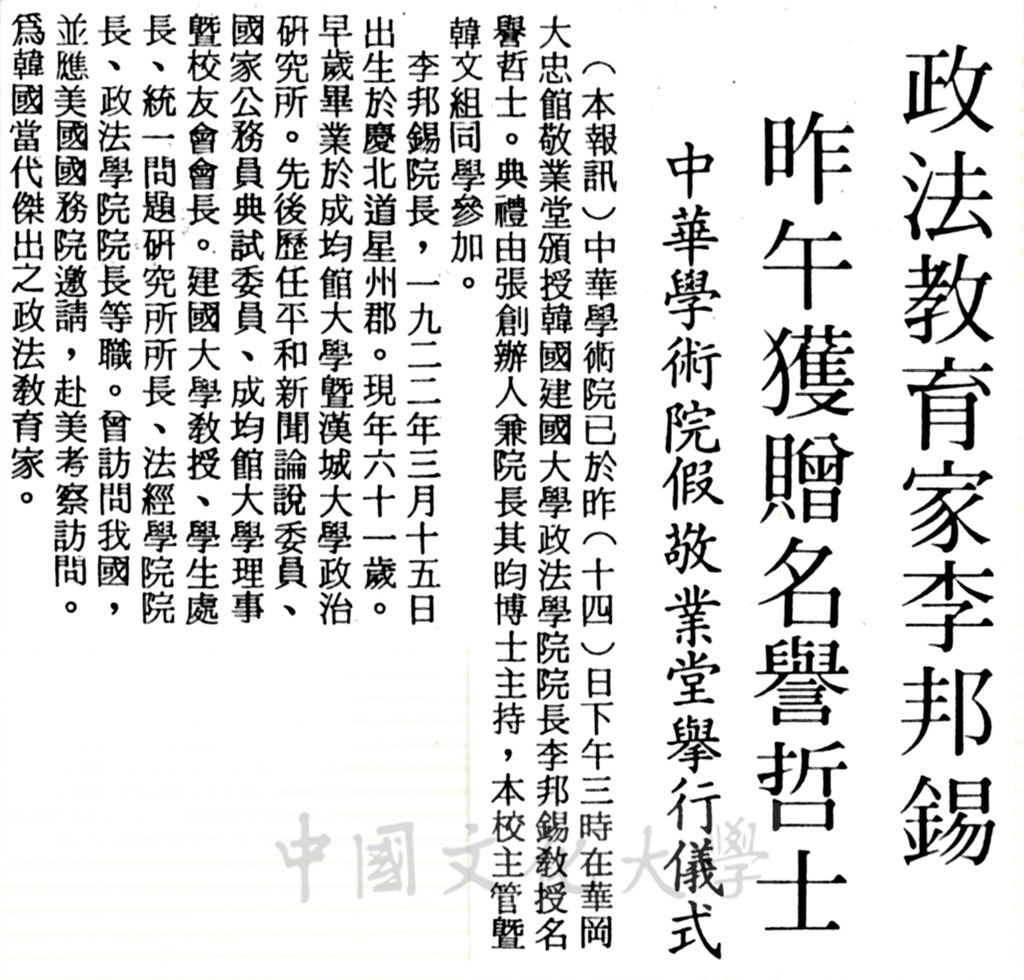 政法教育家李邦錫
昨午獲贈名譽哲士
中華學術院假敬業堂舉行儀式
（本報訊）中華學術院已於昨（十四）日下午三時在華岡
大忠館敬業堂頒授韓國建國大學政法學院院長李邦錫教授名
譽哲士。典禮由張創辦人兼院長其昀博士主持，本校主管暨
韓文組同學參加。
李邦錫院長，一九二二年三月十五日
出生於慶北道星州郡。現年六十一歲。
早歲畢業於成均館大學暨漢城大學政治
研究所。先後歷任平和新聞論說委員、
國家公務員典試委員、成均館大學理事
暨校友會會長。建國大學教授、學生處
長、統一問題研究所所長、法經學院院
長、政法學院院長等職。曾訪問我國，
並應美國國務院邀請，赴美考察訪問。
爲韓國當代傑出之政法教育家。
中國文化大學